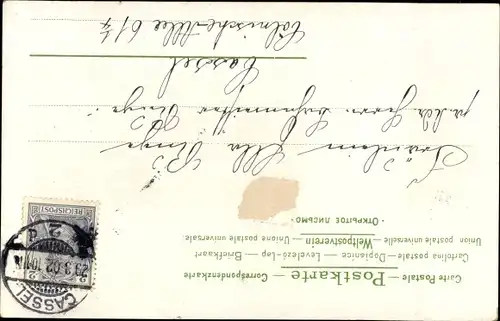 Carte Postale — Postkarte — Correspondenzkarte
Cartolina postale — Dopisnice — Levelező-Lap — Briefkaart
Union postale universelle — Weltpostverein — Unione postale universale
· ОТКРЫТОЕ ПИСЬМО ·
Fräulein Ella
Herrn
Cassel
Cölnische-Allee 61 1/4
REICHSPOST
CASSEL
23.3.02